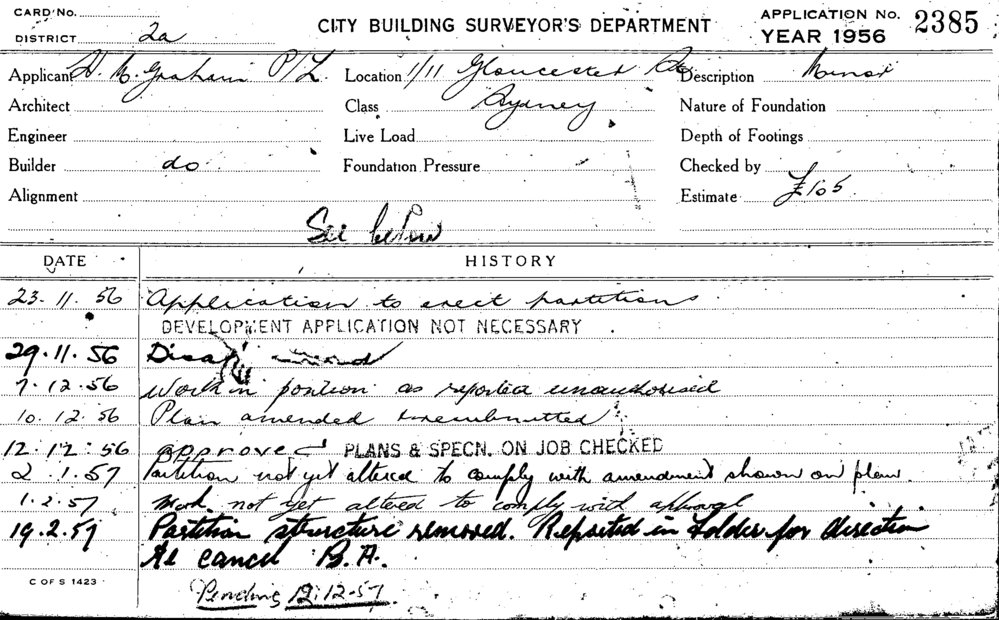 CARD NO.
DISTRICT 2a
CITY BUILDING SURVEYOR'S DEPARTMENT
APPLICATION NO. 2385
YEAR 1956
Applicant H. M. Graham P/L. Location 1/11 Gloucester St Description Minor
Architect Class Sydney Nature of Foundation
Engineer Live Load Depth of Footings
Builder do Foundation Pressure Checked by
Alignment Estimate £105
See below
DATE HISTORY
23. 11. 56 Application to erect partitions
DEVELOPMENT APPLICATION NOT NECESSARY
29. 11. 56
7. 12. 56 Work in position as reported unauthorised
10. 12. 56 Plan amended & resubmitted
12. 12. 56 approved PLANS & SPECN. ON JOB CHECKED
2. 1. 57 Partition not yet altered to comply with amendment shown on plan.
1. 2. 57 Work not yet altered to comply with approval
19. 2. 57 Partition structure removed. Reported in folder for direction
re cancel B.A.
C OF S 1423
Pending 12.12.57.